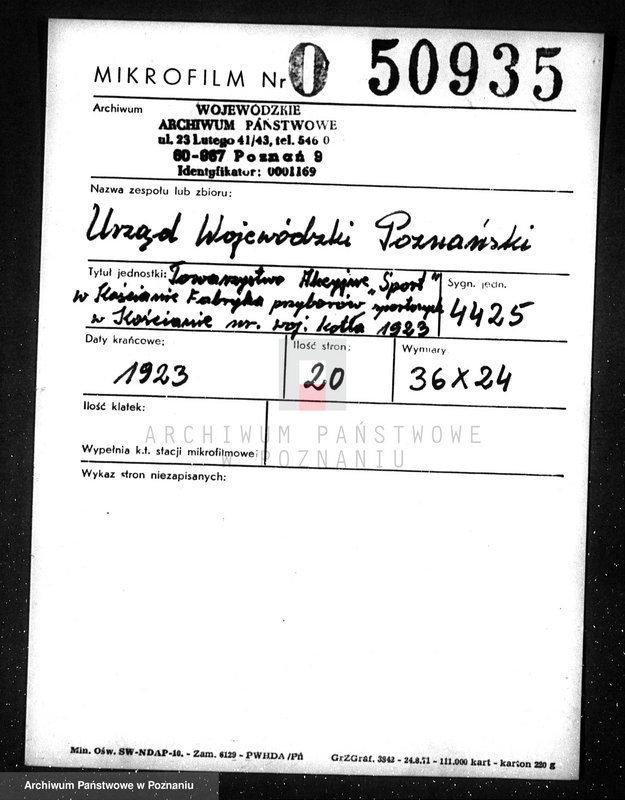 MIKROFILM Nr 0 50935
Archiwum
WOJEWÓDZKIE
ARCHIWUM PAŃSTWOWE
ul. 23 Lutego 41/43, tel. 546 0
60-967 Poznań 9
Identyfikator: 0001169
Nazwa zespołu lub zbioru:
Urząd Wojewódzki Poznański
Tytuł jednostki: Towarzystwo Akcyjne „Sport"
w Kościanie Fabryka przyborów sportowych
w Kościanie wr. woj. kotła 1923
Sygn. jedn.
4425
Daty krańcowe:
1923
Ilość stron:
20
Wymiary
36 x 24
Ilość klatek:
Wypełnia k.t. stacji mikrofilmowej
ARCHIWUM PAŃSTWOWE
W POZNANIU
Wykaz stron niezapisanych:
Min. Ośw. SW-NDAP-10. - Zam. 6129 - PWHDA/Pń
GrZGraf. 3842 - 24.8.71 - 111.000 kart - karton 220 g
Archiwum Państwowe w Poznaniu